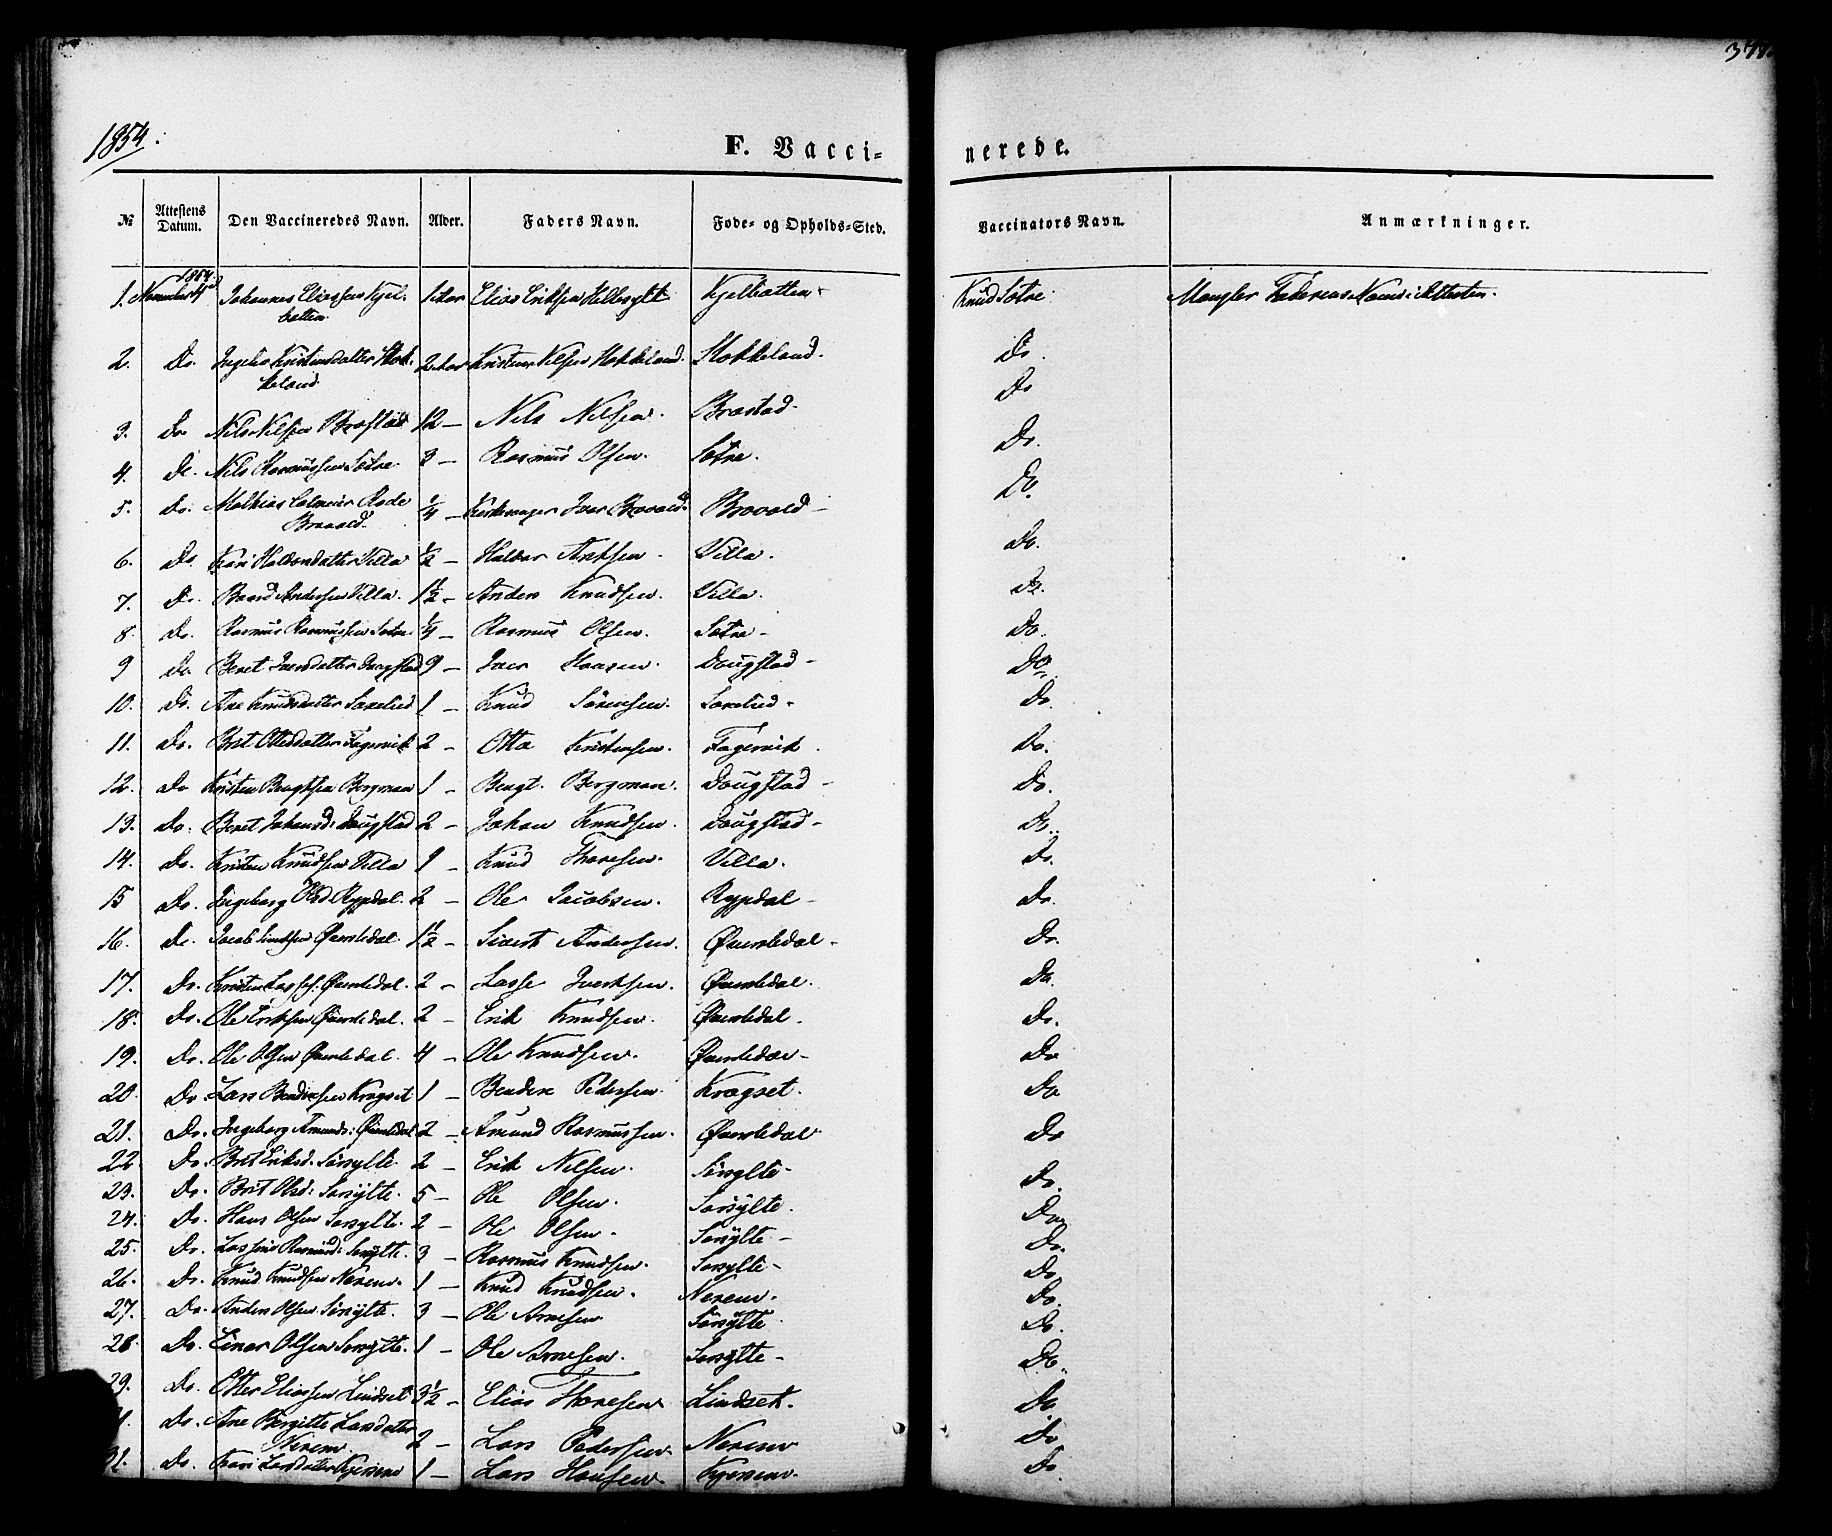 1854.
F. Vacci-
nerede.
№ Attestens Datum. Den Vaccineredes Navn. Alder. Faders Navn. Føde- og Opholds-Sted. Vaccinators Navn. Anmærkninger.
1. November 1854 Johannes Eliassen Kjel- 1 Aar Elias Eriksen Hellesylt Kjelbotten Knud Sætre Mangler Faderens Navn i Attesten.
botten
2. Do. Kristensdatter Stok- 2 Aar Kristen Nilsen Stokkeland. Stokkeland. Do.
keland
3. Do. Nils Nilsen Brastad 12 — Nils Nilsen. Brastad - Do
4. Do. Nils Rasmussen Sætre. 3 — Rasmus Olsen. Sætre. Do.
5. Do. Mathias Rode ¼ — Kirkesanger Iver Bravold. Bravold - Do.
Bravold.
6. Do. Kari Villa ½ — Halvor . Villa. Do.
7. Do. Baard Andersen Villa. 1½ - Anders Knudsen. Villa. Do.
8. Do. Rasmus Rasmussen Sætre. ¼ — Rasmus Olsen. Sætre - Do.
9 Do. Beret Iversdatter Dougstad 9 — Iver Hansen. Dougstad - Do.
10. Do. Ane Knudsdatter 1 — Knud Sørensen. Do.
11. Do. Brit Ottesdatter Fagervik 2 — Otte Kristensen. Fagervik. Do.
12. Do Kristen Bengtsen Bergman 1 — Bengt Bergman. Dougstad - Do.
13. Do. Beret Johansd: Dougstad 2 — Johan Knudsen. Dougstad - Do.
14. Do. Kristen Knudsen Villa 1 — Knud Thoresen. Villa. Do.
15 Do. Ingeborg Olsd Rypdal. 2 — Ole Jacobsen. Rypdal - Do.
16. Do. Jacob Øverledal. 1½ — Sivert Andersen. Øverledal - Do.
17. Do. Kristen Øverledal. 2 - Lasse . Øverledal. Do.
18. Do. Ole Eriksen Øverledal. 2 - Erik Knudsen. Øverledal. Do.
19. Do. Ole Olsen Øverledal. 4 — Ole Knudsen. Øverledal - Do
20. Do Lars Bendixsen Kragset 1 — Bendix Pedersen. Kragset. Do
21. Do. Ingeborg Amunds: Øverledal 2 — Amund Rasmussen. Øverledal Do
22. Do. Brit Eriksd: Sørsylte. 2 - Erik Nilsen. Sørsylte - Do.
23. Do. Brit Olsd: Sørsylte. 5 — Ole Olsen. Sørsylte. Do.
24. Do. Hans Olsen Sørsylte. 2 — Ole Olsen. Sørsylte - Do.
25. Do. Rasmusd: Sørsylte. 3 — Rasmus Knudsen. Sørsylte - Do.
26. Do. Knud Knudsen Nerem. 1 — Knud Knudsen. Nerem. Do.
27. Do. Anders Olsen Sørsylte. 3 — Ole Arnesen Sørsylte Do.
28. Do. Einar Olsen Sørsylte. 1 — Ole Arnesen. Sørsylte - Do.
29. Do. Otter Eliassen Lindset 3½ — Elias Thoresen Lindset. Do
Do. Ane Birgitte Larsdatter Do
Nerem. 2 — Lars Pedersen. Nerem
31. Do. Kari Larsdatter 1 — Lars Hansen. Do.